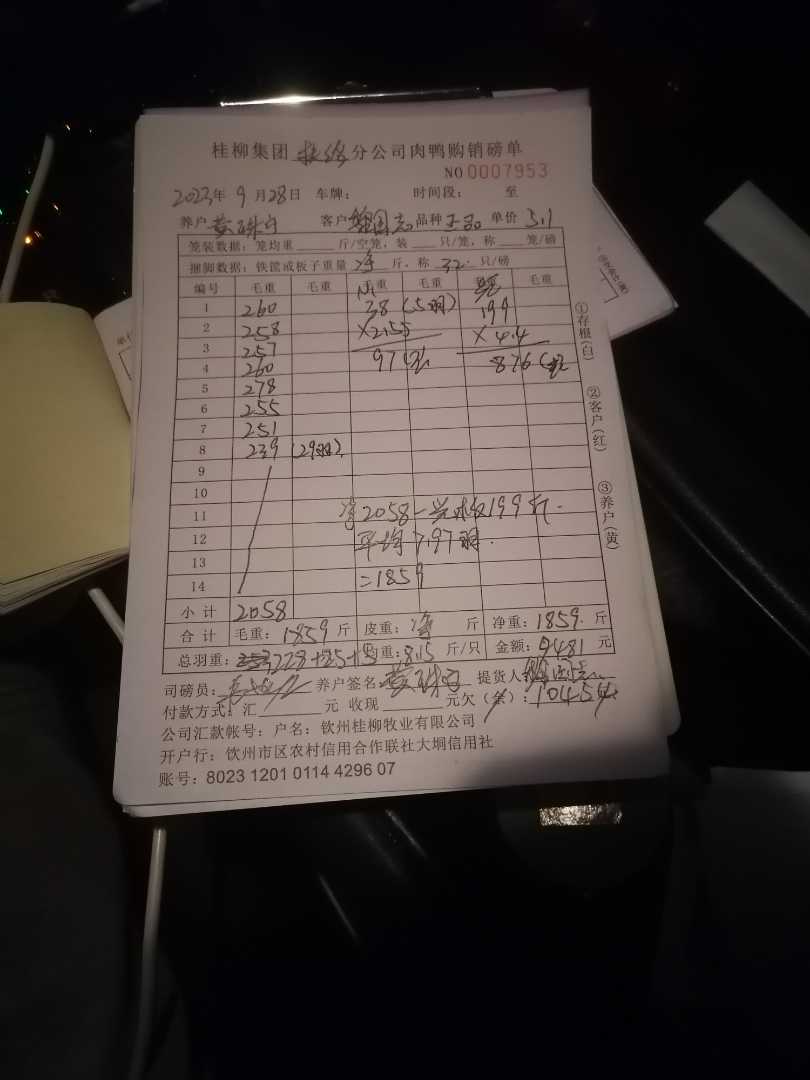 桂柳集团 分公司肉鸭购销磅单
NO 0007953
2023年 9 月 28日 车牌： 时间段： 至
养户 黄珠 客户 国志 品种 单价 5.1
笼装数据：笼均重 斤/空笼，装 只/笼，称 笼/磅
捆脚数据：铁筐或板子重量 净 斤，称 32 只/磅
编号 毛重 毛重 毛重 毛重 毛重 毛重
1 260 38 (5羽) 199
2 258 ×2.55 ×4.4
3 257
4 260 97 876
5 278
6 255
7 251
8 239 (29羽)
9
10
11 净2058 - 199斤
12 平均7.97
13
14 =1859
小计 2058
合计 毛重：1859 斤 皮重：净 斤 净重：1859 斤
总羽重： 228+25+5 均重：8.15 斤/只 金额：9481 元
司磅员： 养户签名 黄珠 提货人
付款方式：汇 元 收现 元欠（余）：10454
公司汇款帐号：户名：钦州桂柳牧业有限公司
开户行：钦州市区农村信用合作联社大垌信用社
账号：8023 1201 0114 4296 07
①存根(白)
②客户(红)
③养户(黄)